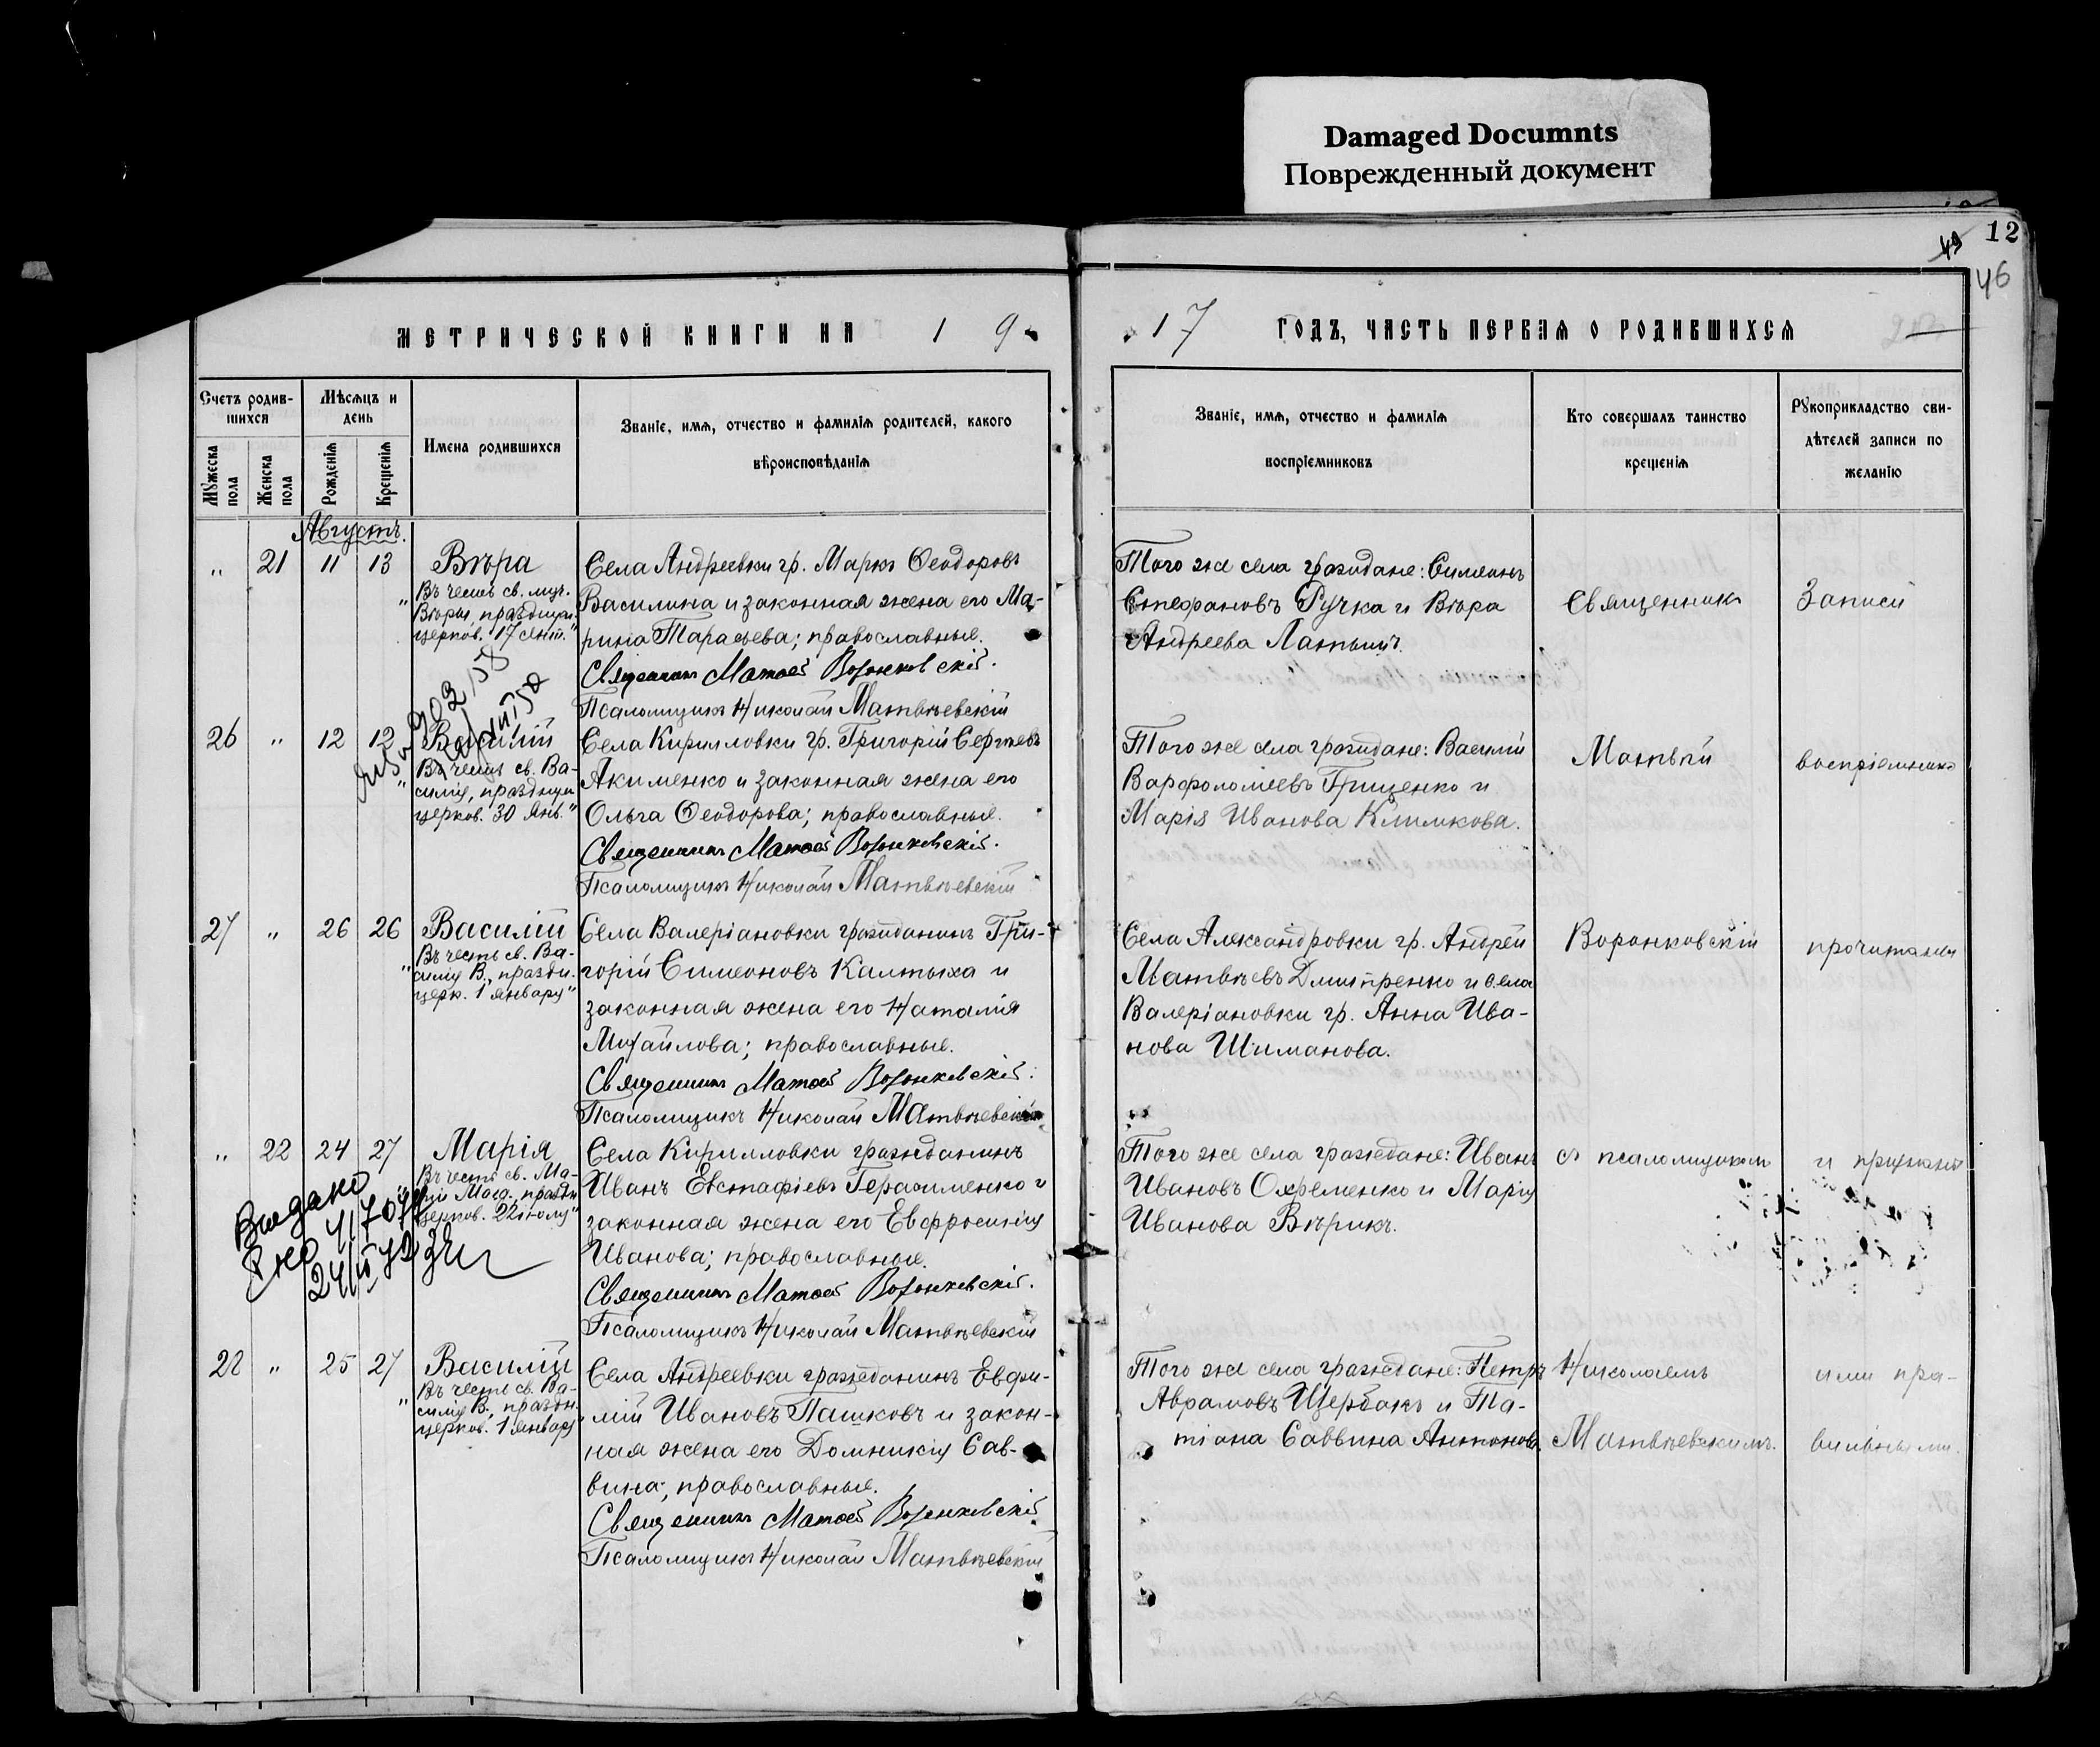 Damaged Documnts
Поврежденный документ
12
49
46
МЕТРИЧЕСКОЙ КНИГИ НА 1 9
17 ГОДЪ, ЧАСТЬ ПЕРВАЯ О РОДИВШИХСЯ
Счетъ родив-
шихся
Мужеска пола
Женска пола
Мѣсяцъ и день
Рожденія
Крещенія
Имена родившихся
Званіе, имя, отчество и фамилія родителей, какого
вѣроисповѣданія
Званіе, имя, отчество и фамилія
воспріемниковъ
Кто совершалъ таинство
крещенія
Рукоприкладство сви-
дѣтелей записи по
желанію
Августъ.
" 21 11 13 Вѣра
"Въ честь св. муч.
Вѣры, праздну.
церков. 17 сент."
Села Андреевки гр. Маркъ Ѳеодоровъ
Василина и законная жена его Ма-
рина Тарасьева; православные.
Священникъ Матѳей Воронковскій.
Псаломщикъ Николай Матвѣевскій
Того же села граждане: Симеонъ
Стефановъ Ручка и Вѣра
Андреева Латышъ.
Священникъ
Записи
26 " 12 12 Василій
"Въ честь св. Ва-
силія, празднуем
церков. 30 Янв."
Села Кирилловки гр. Григорій Сергѣевъ
Акименко и законная жена его
Ольга Ѳеодорова; православные.
Священникъ Матѳей Воронковскій.
Псаломщикъ Николай Матвѣевскій
Того же села граждане: Василій
Варфоломіевъ Грищенко и
Марія Иванова Климкова.
Матѳей
воспріемника
27 " 26 26 Василій
"Въ честь св. Ва-
силія В., праздн.
церк. 1 январу"
Села Валеріановки гражданинъ Гри-
горій Симеоновъ Калтыха и
законная жена его Наталія
Михайлова; православные.
Священникъ Матѳей Воронковскій.
Псаломщикъ Николай Матвѣевскій
Села Александровки гр. Андрей
Матвѣевъ Дмитренко и села
Валеріановки гр. Анна Ива-
нова Шиманова.
Воронковскій
прочитаны
" 22 24 27 Марія
"Въ честь св. Ма-
ріи Магд., праздн
церков. 22 іюлу"
Выдано
24/II 72
Села Кирилловки гражданинъ
Иванъ Евстафіевъ Герасименко и
законная жена его Евфросинія
Иванова; православные.
Священникъ Матѳей Воронковскій.
Псаломщикъ Николай Матвѣевскій
Того же села граждане: Иванъ
Ивановъ Охременко и Марія
Иванова Вѣрикъ.
съ псаломщикомъ
и признаны
28 " 25 27 Василій
"Въ честь св. Ва-
силія В., праздн.
церков. 1 январу"
Села Андреевки гражданинъ Евфи-
мій Ивановъ Пашковъ и закон-
ная жена его Домникія Сав-
вина; православные.
Священникъ Матѳей Воронковскій.
Псаломщикъ Николай Матвѣевскій
Того же села граждане: Петръ
Аврамовъ Щербакъ и Та-
тіана Саввина Антонова.
Николаемъ
Матвѣевскимъ.
ими пра-
вильными.